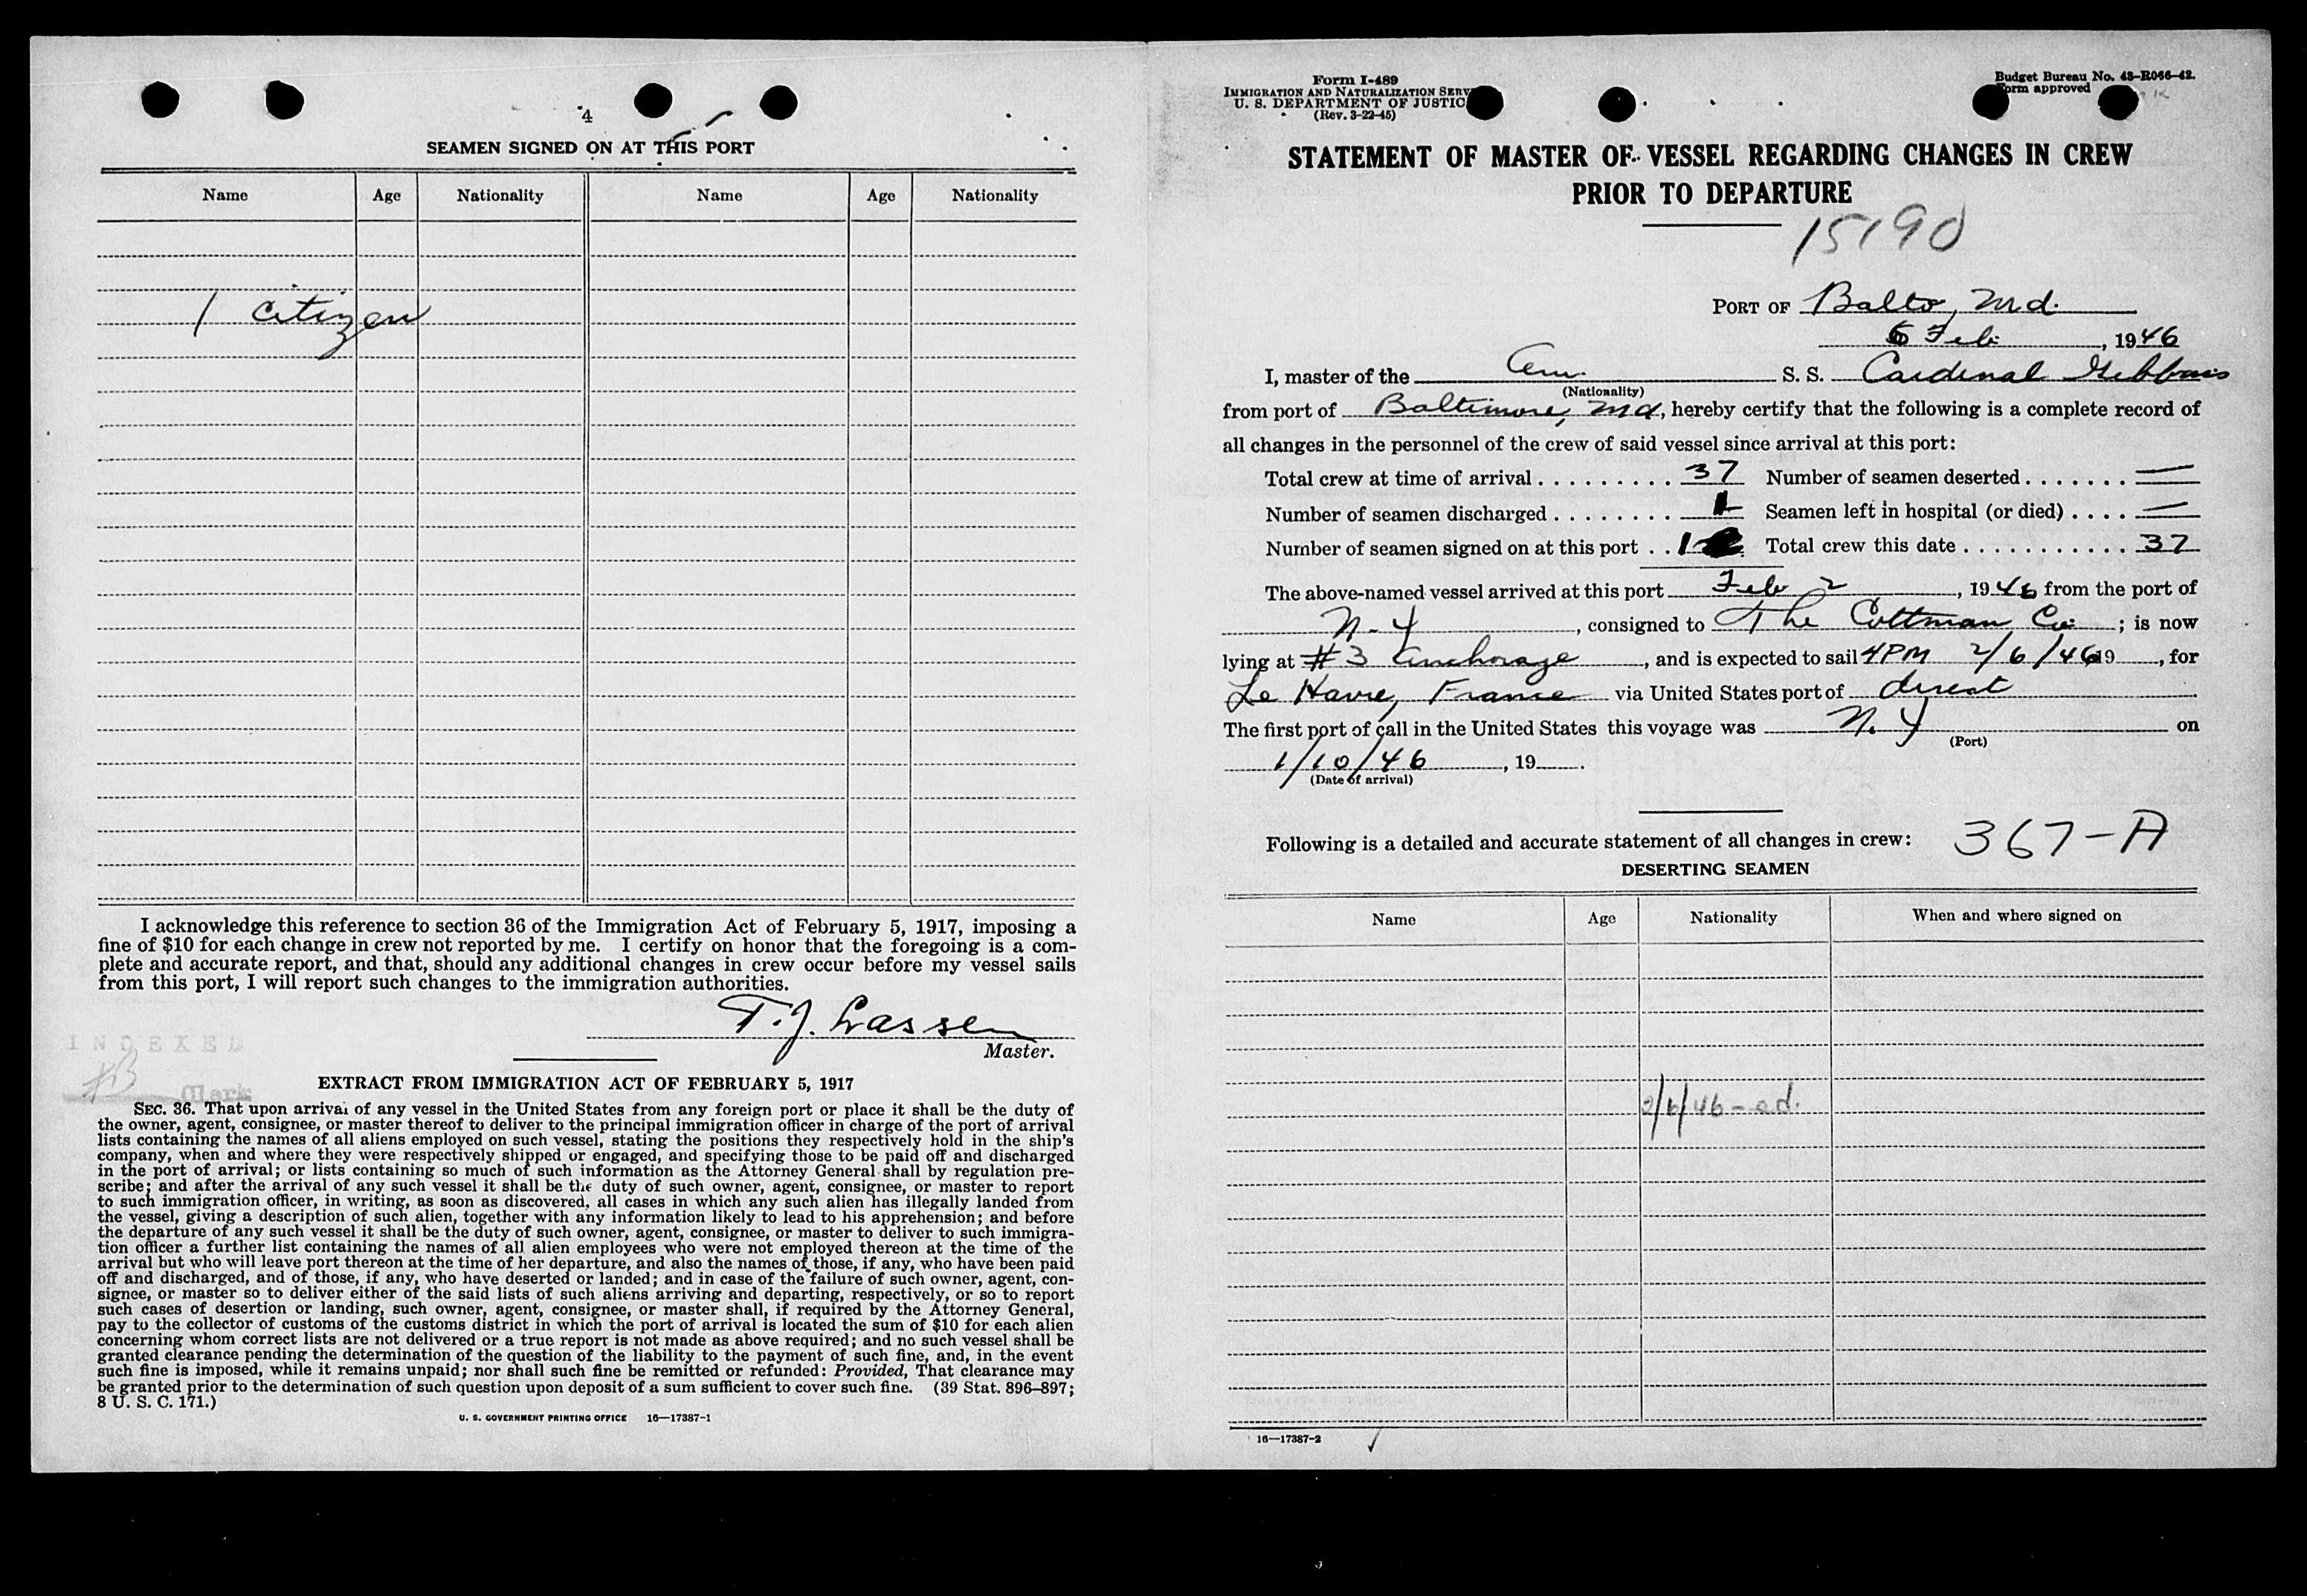 4
SEAMEN SIGNED ON AT THIS PORT
Name Age Nationality Name Age Nationality
1 citizen
I acknowledge this reference to section 36 of the Immigration Act of February 5, 1917, imposing a
fine of $10 for each change in crew not reported by me. I certify on honor that the foregoing is a com-
plete and accurate report, and that, should any additional changes in crew occur before my vessel sails
from this port, I will report such changes to the immigration authorities.
T. J. Lassen
Master.
INDEXED
Clerk
EXTRACT FROM IMMIGRATION ACT OF FEBRUARY 5, 1917
SEC. 36. That upon arrival of any vessel in the United States from any foreign port or place it shall be the duty of
the owner, agent, consignee, or master thereof to deliver to the principal immigration officer in charge of the port of arrival
lists containing the names of all aliens employed on such vessel, stating the positions they respectively hold in the ship's
company, when and where they were respectively shipped or engaged, and specifying those to be paid off and discharged
in the port of arrival; or lists containing so much of such information as the Attorney General shall by regulation pre-
scribe; and after the arrival of any such vessel it shall be the duty of such owner, agent, consignee, or master to report
to such immigration officer, in writing, as soon as discovered, all cases in which any such alien has illegally landed from
the vessel, giving a description of such alien, together with any information likely to lead to his apprehension; and before
the departure of any such vessel it shall be the duty of such owner, agent, consignee, or master to deliver to such immigra-
tion officer a further list containing the names of all alien employees who were not employed thereon at the time of the
arrival but who will leave port thereon at the time of her departure, and also the names of those, if any, who have been paid
off and discharged, and of those, if any, who have deserted or landed; and in case of the failure of such owner, agent, con-
signee, or master so to deliver either of the said lists of such aliens arriving and departing, respectively, or so to report
such cases of desertion or landing, such owner, agent, consignee, or master shall, if required by the Attorney General,
pay to the collector of customs of the customs district in which the port of arrival is located the sum of $10 for each alien
concerning whom correct lists are not delivered or a true report is not made as above required; and no such vessel shall be
granted clearance pending the determination of the question of the liability to the payment of such fine, and, in the event
such fine is imposed, while it remains unpaid; nor shall such fine be remitted or refunded: Provided, That clearance may
be granted prior to the determination of such question upon deposit of a sum sufficient to cover such fine. (39 Stat. 896–897;
8 U. S. C. 171.)
U. S. GOVERNMENT PRINTING OFFICE 16—17387-1
Form I-489
IMMIGRATION AND NATURALIZATION SERV
U. S. DEPARTMENT OF JUSTIC
(Rev. 3-22-45)
Budget Bureau No. 43-R066-42.
Form approved
STATEMENT OF MASTER OF VESSEL REGARDING CHANGES IN CREW
PRIOR TO DEPARTURE
15190
PORT OF Balto, Md.
6 Feb. , 1946
I, master of the Am. S. S. Cardinal Gibbons
(Nationality)
from port of Baltimore, Md, hereby certify that the following is a complete record of
all changes in the personnel of the crew of said vessel since arrival at this port:
Total crew at time of arrival . . . . . . . . . 37 Number of seamen deserted . . . . . . . —
Number of seamen discharged . . . . . . . . 1 Seamen left in hospital (or died) . . . . —
Number of seamen signed on at this port . . 1 Total crew this date . . . . . . . . . . . 37
The above-named vessel arrived at this port Feb 2 , 1946 from the port of
N. Y , consigned to The Cottman Co. ; is now
lying at #3 anchorage , and is expected to sail 4PM 2/6/46 19 , for
Le Havre, France via United States port of direct
The first port of call in the United States this voyage was N. Y on
(Port)
1/10/46 , 19 .
(Date of arrival)
Following is a detailed and accurate statement of all changes in crew: 367-A
DESERTING SEAMEN
Name Age Nationality When and where signed on
2/6/46 - ed.
16—17387-2